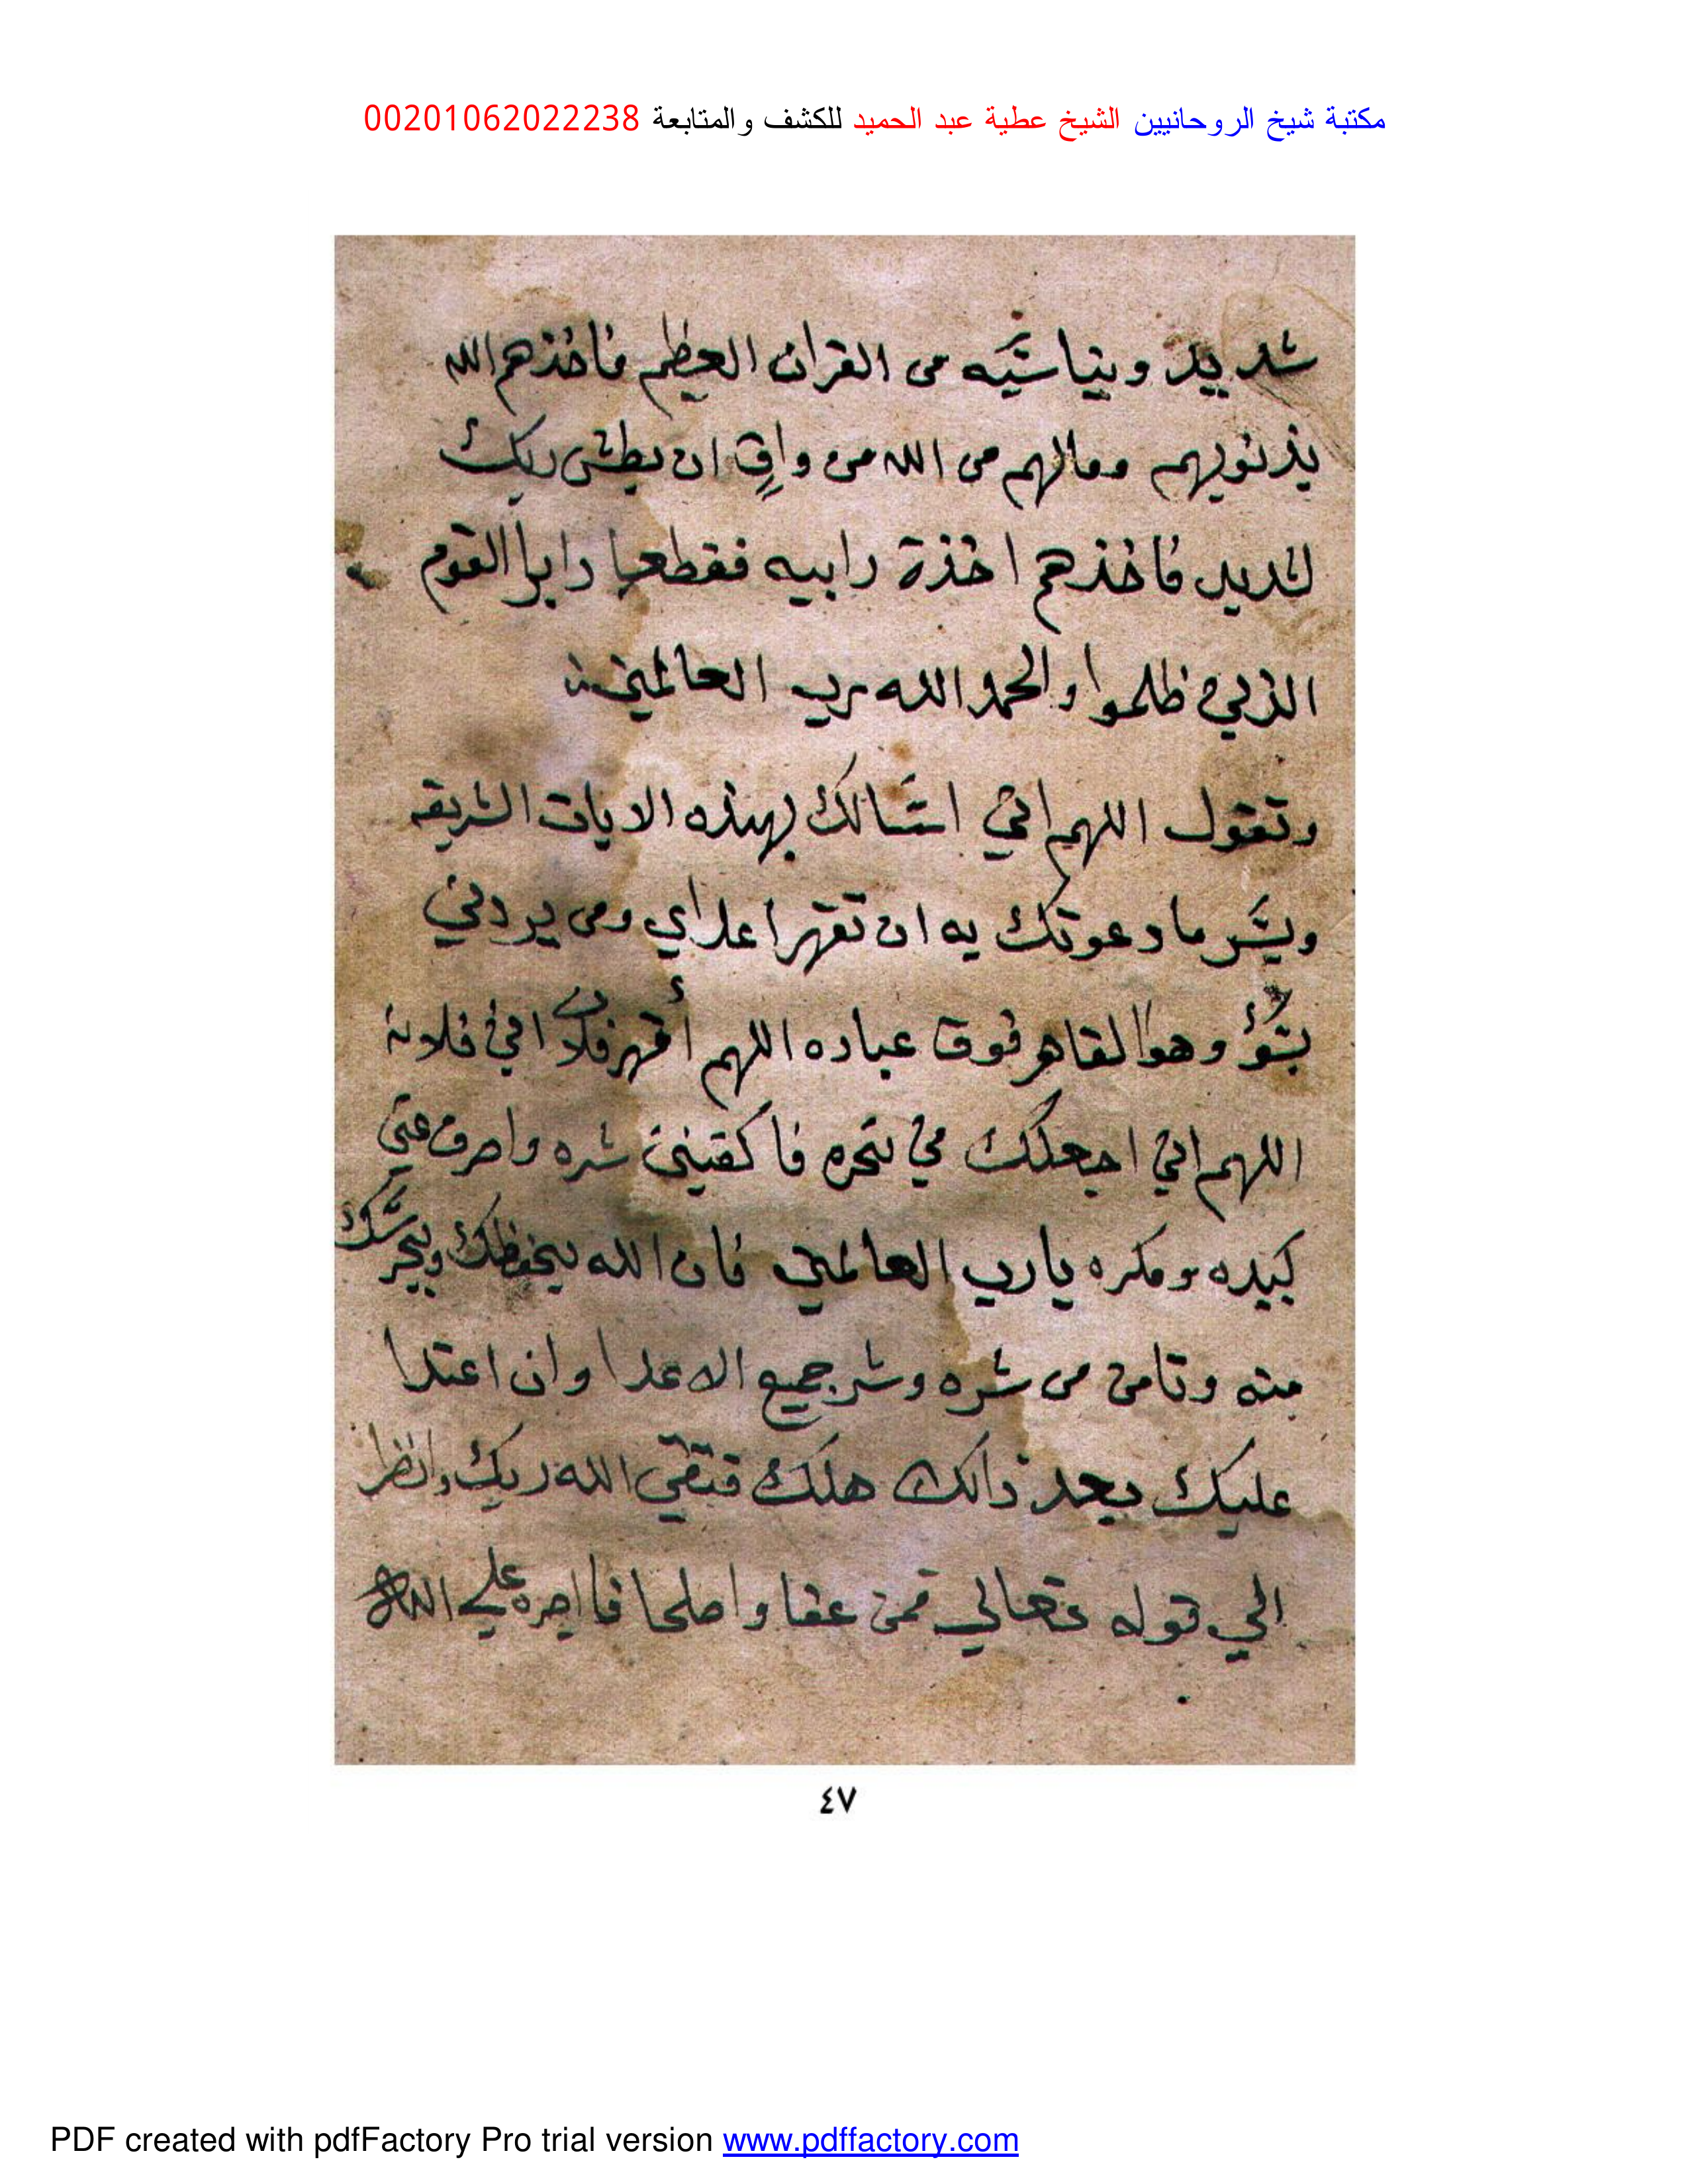 مكتبة شيخ الروحانيين الشيخ عطية عبد الحميد للكشف والمتابعة 00201062022238
شديد ويناسبه من القران العظيم فاخذهم الله
بذنوبهم ومالهم من الله من واقٍ ان بطش ربك
لشديد فاخذهم اخذة رابيه فقطعا دابرا القوم
الذين ظلموا والحمد الله رب العالمين
وتقول اللهم اني اسالك بهذه الايات الشريفه
وبسر ما دعوتك به ان تقهر اعداي ومن يردني
بسؤ وهوا القاهر فوق عباده اللهم أقهر فلان ابن فلانه
اللهم اني اجعلك في نحره فاكفيني شره واصرف عني
كيده ومكره يارب العالمين فان الله يحفظك ويحرسك
منه وتامن من شره وشر جميع الاعدا وان اعتدا
عليك بعد ذالك هلك فتقي الله ربك وانظر
الي قوله تعالي فمن عفا واصلحا فااجره علي الله
٤٧
PDF created with pdfFactory Pro trial version www.pdffactory.com